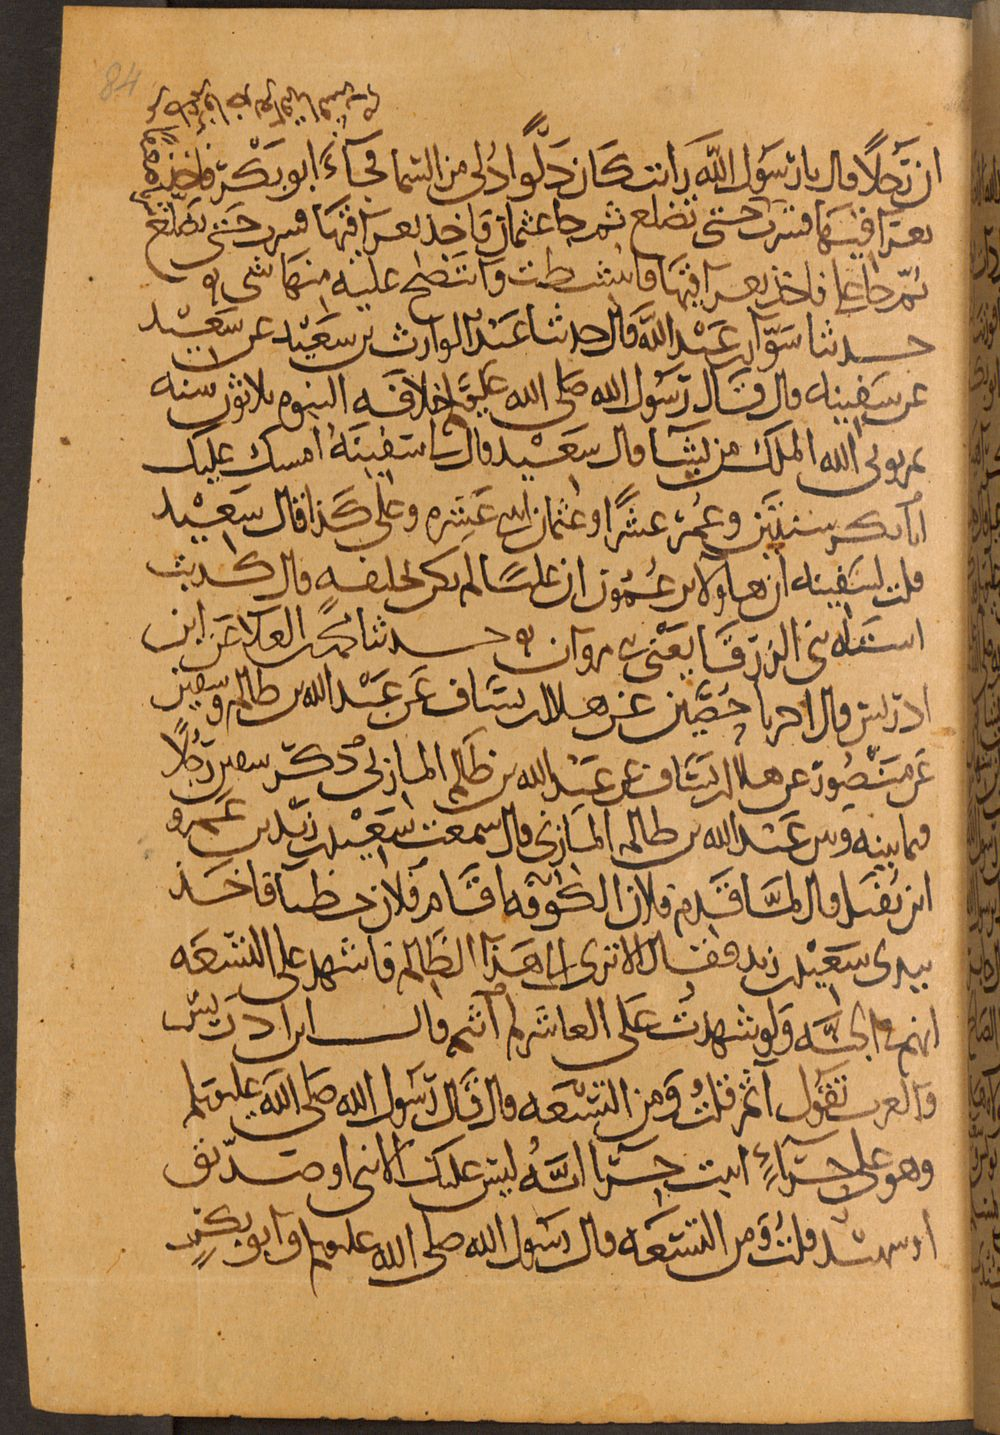 84
ان رجلا قال يا رسول الله رايت كان دلوا دلي من السما فجاء ابو بكر فاخذ
بعراقيها فشرب حتى تضلع ثم جا عثمان فاخذ بعراقيها فشرب حتى تضلع
ثم جا علي فاخذ بعراقيها فانتشطت وانتضح عليه منها شي
حدثنا سوار بن عبد الله قال حدثنا عبد الوارث بن سعيد عن سعيد
عن سفينه قال قال رسول الله صلى الله عليه وسلم خلافه النبوه ثلاثون سنه
ثم يوتي الله الملك من يشا قال سعيد قال لي سفينه امسك عليك
ابا بكر سنتين وعمر عشرا وعثمان اثنى عشره وعلي كذا قال سعيد
قلت لسفينه ان هاولا يزعمون ان عليا لم يكن بخليفه قال كذبت
استاه بني الزرقا يعني بني مروان حدثنا محمد بن العلا عن ابن
ادريس قال اخبرنا حصين عن هلال بن يساف عن عبد الله بن ظالم وسفين
عن منصور عن هلال بن يساف عن عبد الله بن ظالم المازني ذكر سفين رجلا
فيما بينه وبين عبد الله بن ظالم المازني قال سمعت سعيد بن زيد بن عمرو
ابن نفيل قال لما قدم فلان الكوفه اقام فلان خطيبا فاخذ
بيدي سعيد بن زيد فقال الا ترى الى هذا الظالم فاشهد على التسعه
انهم في الجنه ولو شهدت على العاشر لم آثم قال ابن ادريس
والعرب تقول آثم قلت ومن التسعه قال قال رسول الله صلى الله عليه وسلم
وهو على حراء اثبت حرا انه ليس عليك الا نبي او صديق
او شهيد قلت ومن التسعه قال رسول الله صلى الله عليه وسلم وابو بكر